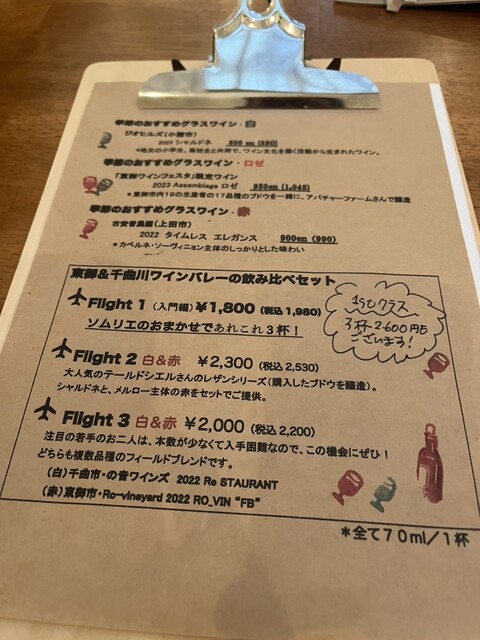 季節のおすすめグラスワイン・白
ジオヒルズ(小諸市)
2023 シャルドネ 800 en (880)
*地元の小学生、高校生と共同で、ワイン文化を築く活動から生まれたワイン。
季節のおすすめグラスワイン・ロゼ
「東御ワインフェスタ」限定ワイン
2023 Assemblage ロゼ 950en (1,045)
*東御市内19の生産者の17品種のブドウを一緒に、アパチャーファームさんで醸造
季節のおすすめグラスワイン・赤
古安曽農園(上田市)
2022 タイムレス エレガンス 900en (990)
*カベルネ・ソーヴィニョン主体のしっかりとした味わい
東御&千曲川ワインバレーの飲み比べセット
Flight 1 (入門編) ¥1,800 (税込 1,980)
ソムリエのおまかせであれこれ3杯!
Flight 2 白&赤 ¥2,300 (税込 2,530)
大人気のテールドシエルさんのレザンシリーズ(購入したブドウを醸造)。
シャルドネと、メルロー主体の赤をセットでご提供。
Flight 3 白&赤 ¥2,000 (税込 2,200)
注目の若手のお二人は、本数が少なくて入手困難なので、この機会にぜひ!
どちらも複数品種のフィールドブレンドです。
(白)千曲市・の音ワインズ 2022 Re STAURANT
(赤)東御市・Ro-vineyard 2022 RO_VIN "FB"
クラス
3杯 2,600円も
ございます!
*全て70ml/1杯